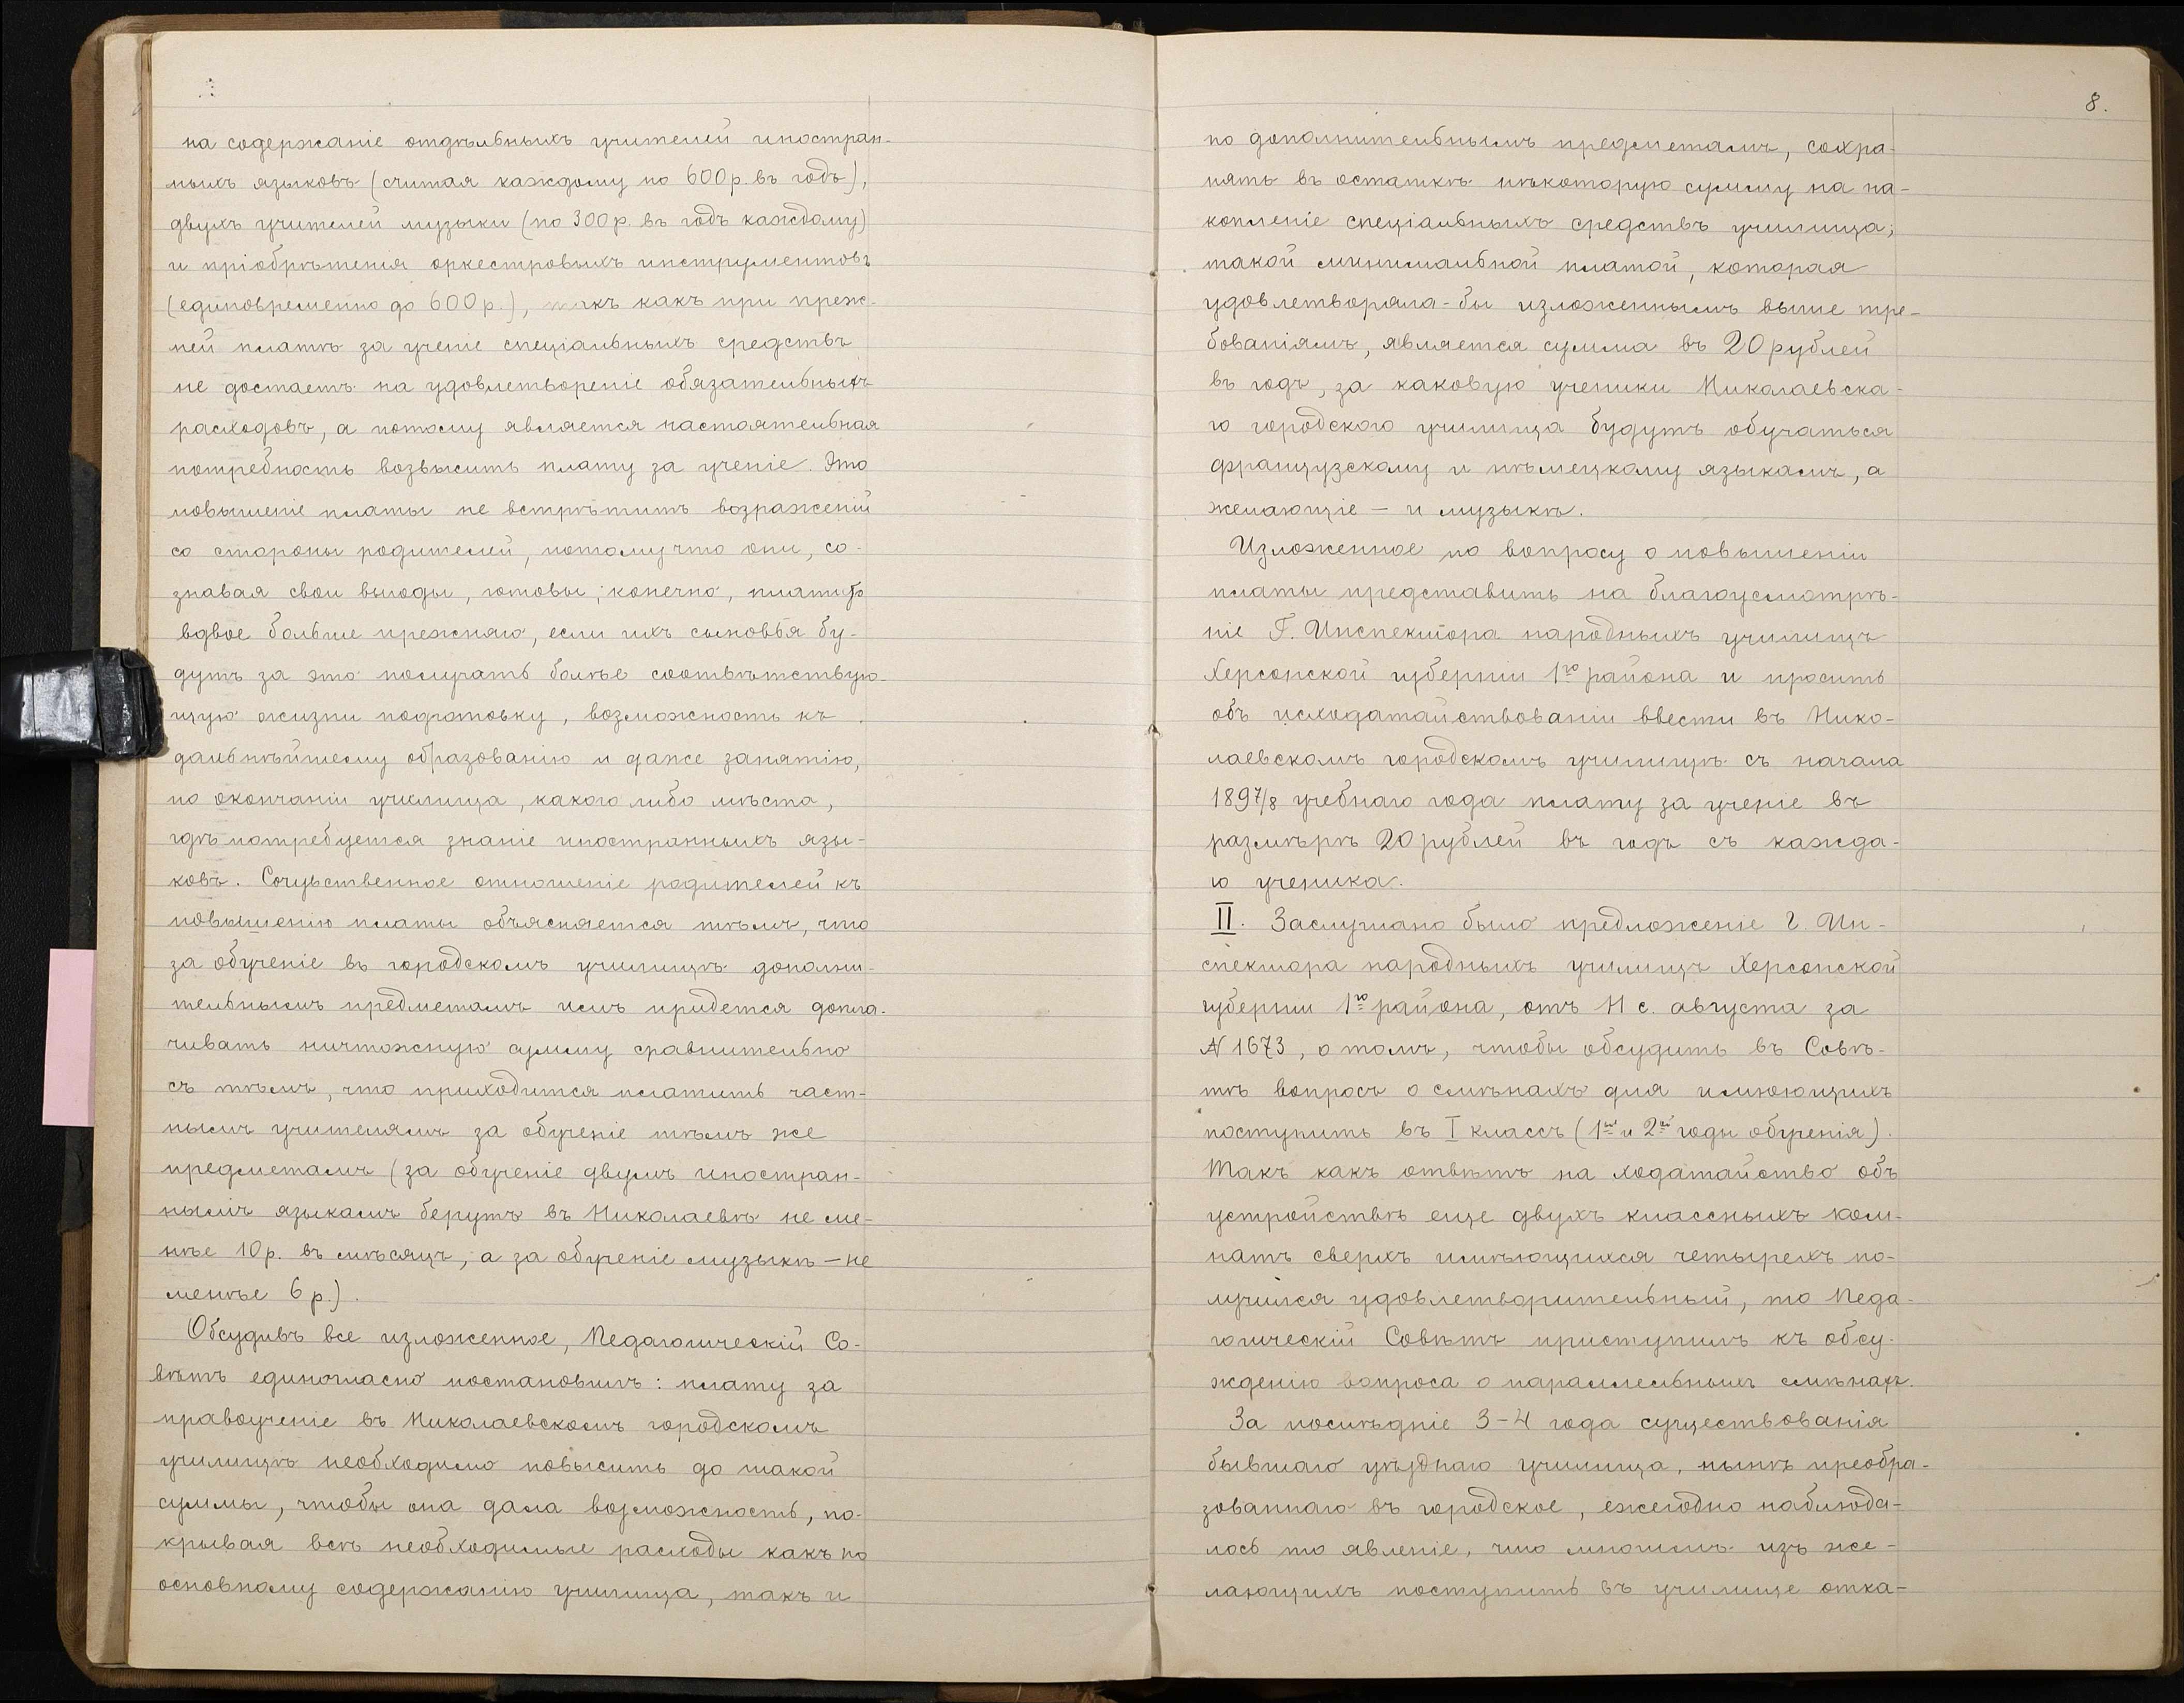 на содержаніе отдѣльныхъ учителей иностран-
ныхъ языковъ (считая каждому по 600 р. въ годъ),
двухъ учителей музыки (по 300 р. въ годъ каждому)
и пріобрѣтенія оркестровыхъ инструментовъ
(единовременно до 600 р.), такъ какъ при преж-
ней платѣ за ученіе спеціальныхъ средствъ
не достаетъ на удовлетвореніе обязательныхъ
расходовъ, а потому является настоятельная
потребность возвысить плату за ученіе. Это
повышеніе платы не встрѣтитъ возраженій
со стороны родителей, потому что они, со-
знавая свои выгоды, готовы, конечно, платить
вдвое больше прежняго, если ихъ сыновья бу-
дутъ за это получать болѣе соотвѣтствую-
щую жизни подготовку, возможность къ
дальнѣйшему образованію и даже занятію,
по окончаніи училища, какого либо мѣста,
гдѣ потребуется знаніе иностранныхъ язы-
ковъ. Сочувственное отношеніе родителей къ
повышенію платы объясняется тѣмъ, что
за обученіе въ городскомъ училищѣ дополни-
тельнымъ предметамъ имъ придется допла-
чивать ничтожную сумму сравнительно
съ тѣмъ, что приходится платить част-
нымъ учителямъ за обученіе тѣмъ же
предметамъ (за обученіе двумъ иностран-
нымъ языкамъ берутъ въ Николаевѣ не ме-
нѣе 10 р. въ мѣсяцъ, а за обученіе музыкѣ – не
менѣе 6 р.).
Обсудивъ все изложенное, Педагогическій Со-
вѣтъ единогласно постановилъ: плату за
правоученіе въ Николаевскомъ городскомъ
училищѣ необходимо повысить до такой
суммы, чтобы она дала возможность, по-
крывая всѣ необходимые расходы какъ по
основному содержанію училища, такъ и
8.
по дополнительнымъ предметамъ, сохра-
нять въ остаткѣ нѣкоторую сумму на на-
копленіе спеціальныхъ средствъ училища;
такой минимальной платой, которая
удовлетворяла-бы изложеннымъ выше тре-
бованіямъ, является сумма въ 20 рублей
въ годъ, за каковую ученики Николаевска-
го городского училища будутъ обучаться
французскому и нѣмецкому языкамъ, а
желающіе – и музыкѣ.
Изложенное по вопросу о повышеніи
платы представить на благоусмотрѣ-
ніе Г. Инспектора народныхъ училищъ
Херсонской губерніи 1го района и просить
объ исходатайствованіи ввести въ Нико-
лаевскомъ городскомъ училищѣ съ начала
1897/8 учебнаго года плату за ученіе въ
размѣрѣ 20 рублей въ годъ съ каждо-
го ученика.
II. Заслушано было предложеніе Г. Ин-
спектора народныхъ училищъ Херсонской
губерніи 1го района, отъ 11 с. августа за
№ 1673, о томъ, чтобы обсудить въ Совѣ-
тѣ вопросъ о смѣнахъ для имѣющихъ
поступить въ I классъ (1й и 2й годы обученія).
Такъ какъ отвѣтъ на ходатайство объ
устройствѣ еще двухъ классныхъ ком-
натъ сверхъ имѣющихся четырехъ по-
лучился удовлетворительный, то Педа-
гогическій Совѣтъ приступилъ къ обсу-
жденію вопроса о параллельныхъ смѣнахъ.
За послѣдніе 3-4 года существованія
бывшаго уѣзднаго училища, нынѣ преобра-
зованнаго въ городское, ежегодно наблюда-
лось то явленіе, что многимъ изъ же-
лающихъ поступить въ училище отка-